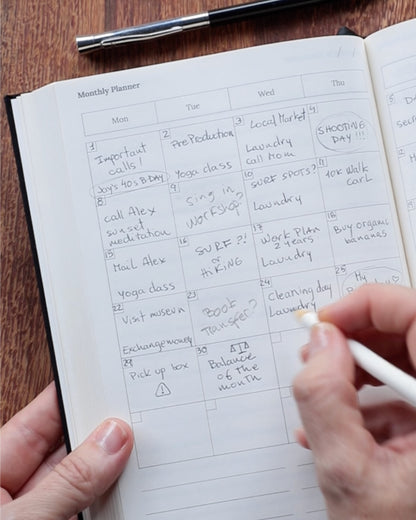 Monthly Planner
Mon
Tue
Wed
Thu
1
Important
calls!
Jay's 40s B-DAY
2
Pre Production
Yoga class
3
Local Market
Laundry
call Mom
4
SHOOTING
DAY !!!
8
call Alex
sunset
meditation
9
Sing in
WORKSHOP?
10
SURF SPOTS?
Laundry
11
10K Walk
CARL
15
Mail Alex
yoga class
16
SURF?!
or
HIKING
17
Work Plan
2 years
Laundry
18
Buy organic
bananas
22
Visit museum
Exchange money
23
Book
Transfer?
24
Cleaning day
Laundry
25
My
29
Pick up box
30
Balance
of the
month